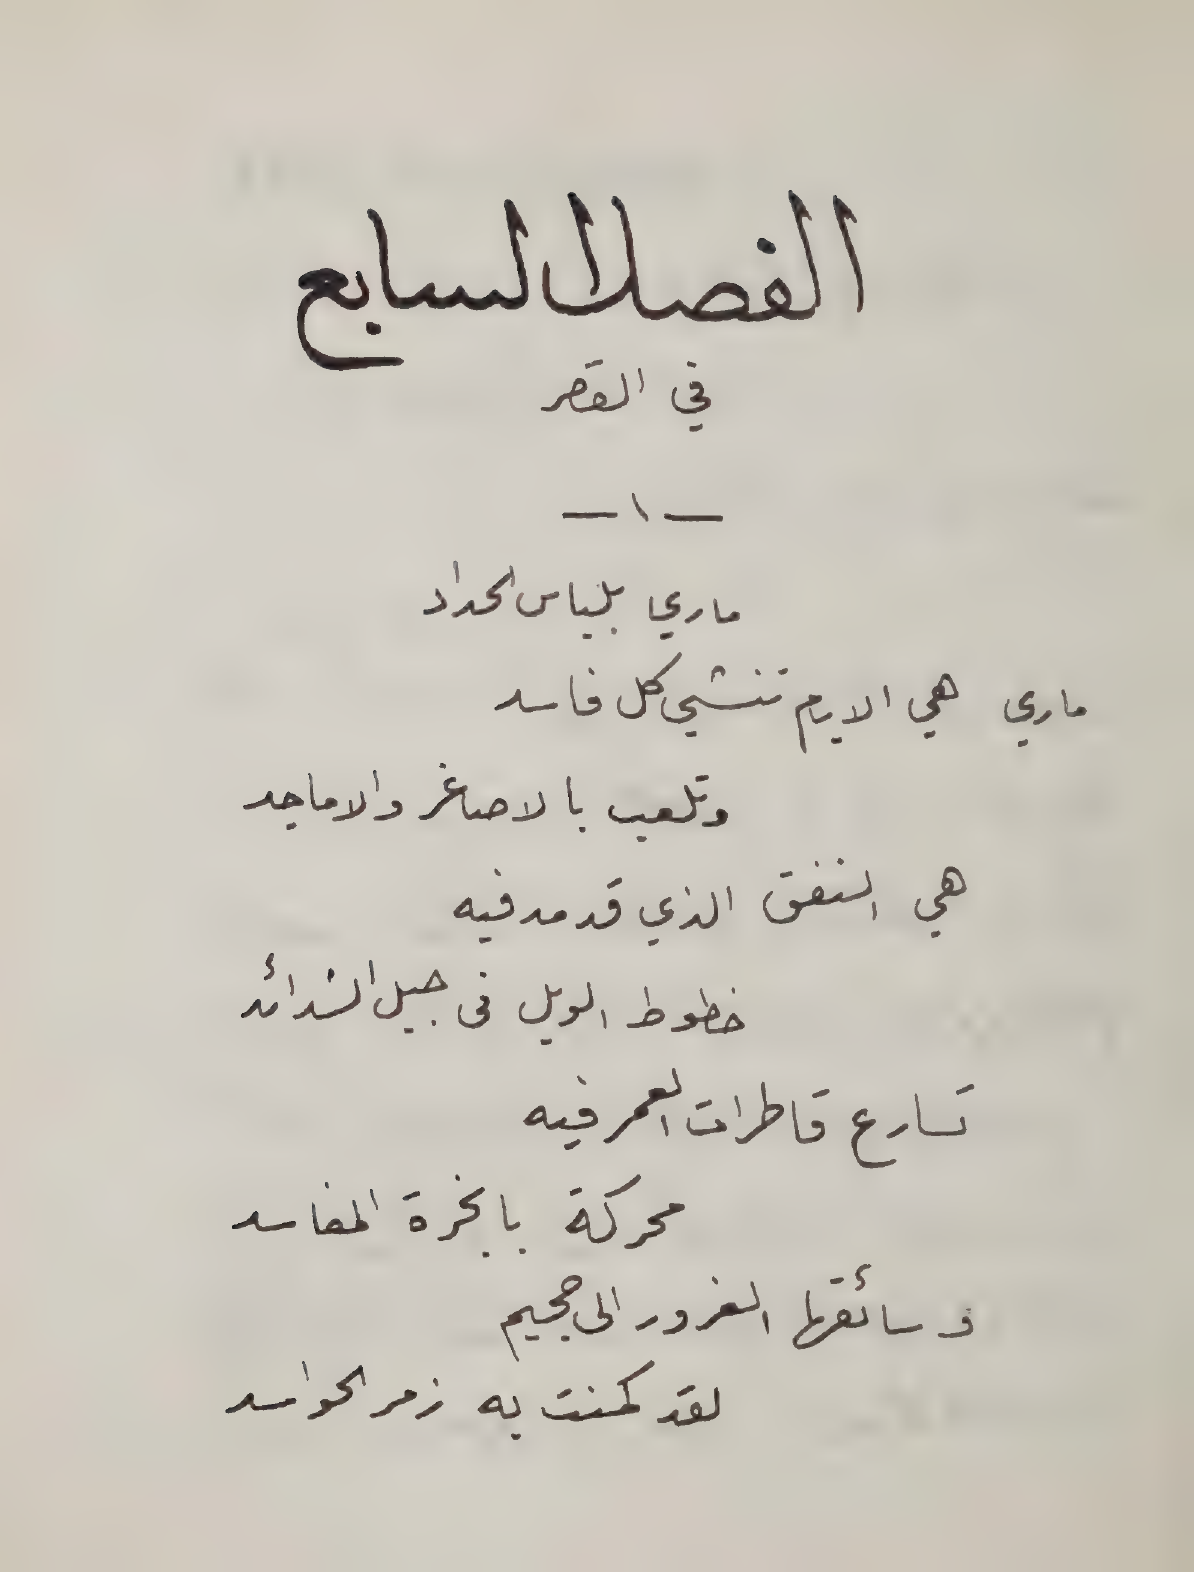 الفصل السابع
في القصر
— ١ —
ماري بلباس الحداد
ماري هي الايرم تنشي كل فاسد
وتلعب بالاصاغر والاماجد
هي النفق الذي قد مد فيه
خطوط الويل في جبل الشدائد
تسارع قاطرات العمر فيه
محركة بابخرة المفاسد
وسائقها الغرور الى جحيم
لقد كمنت به زمر الحواسد